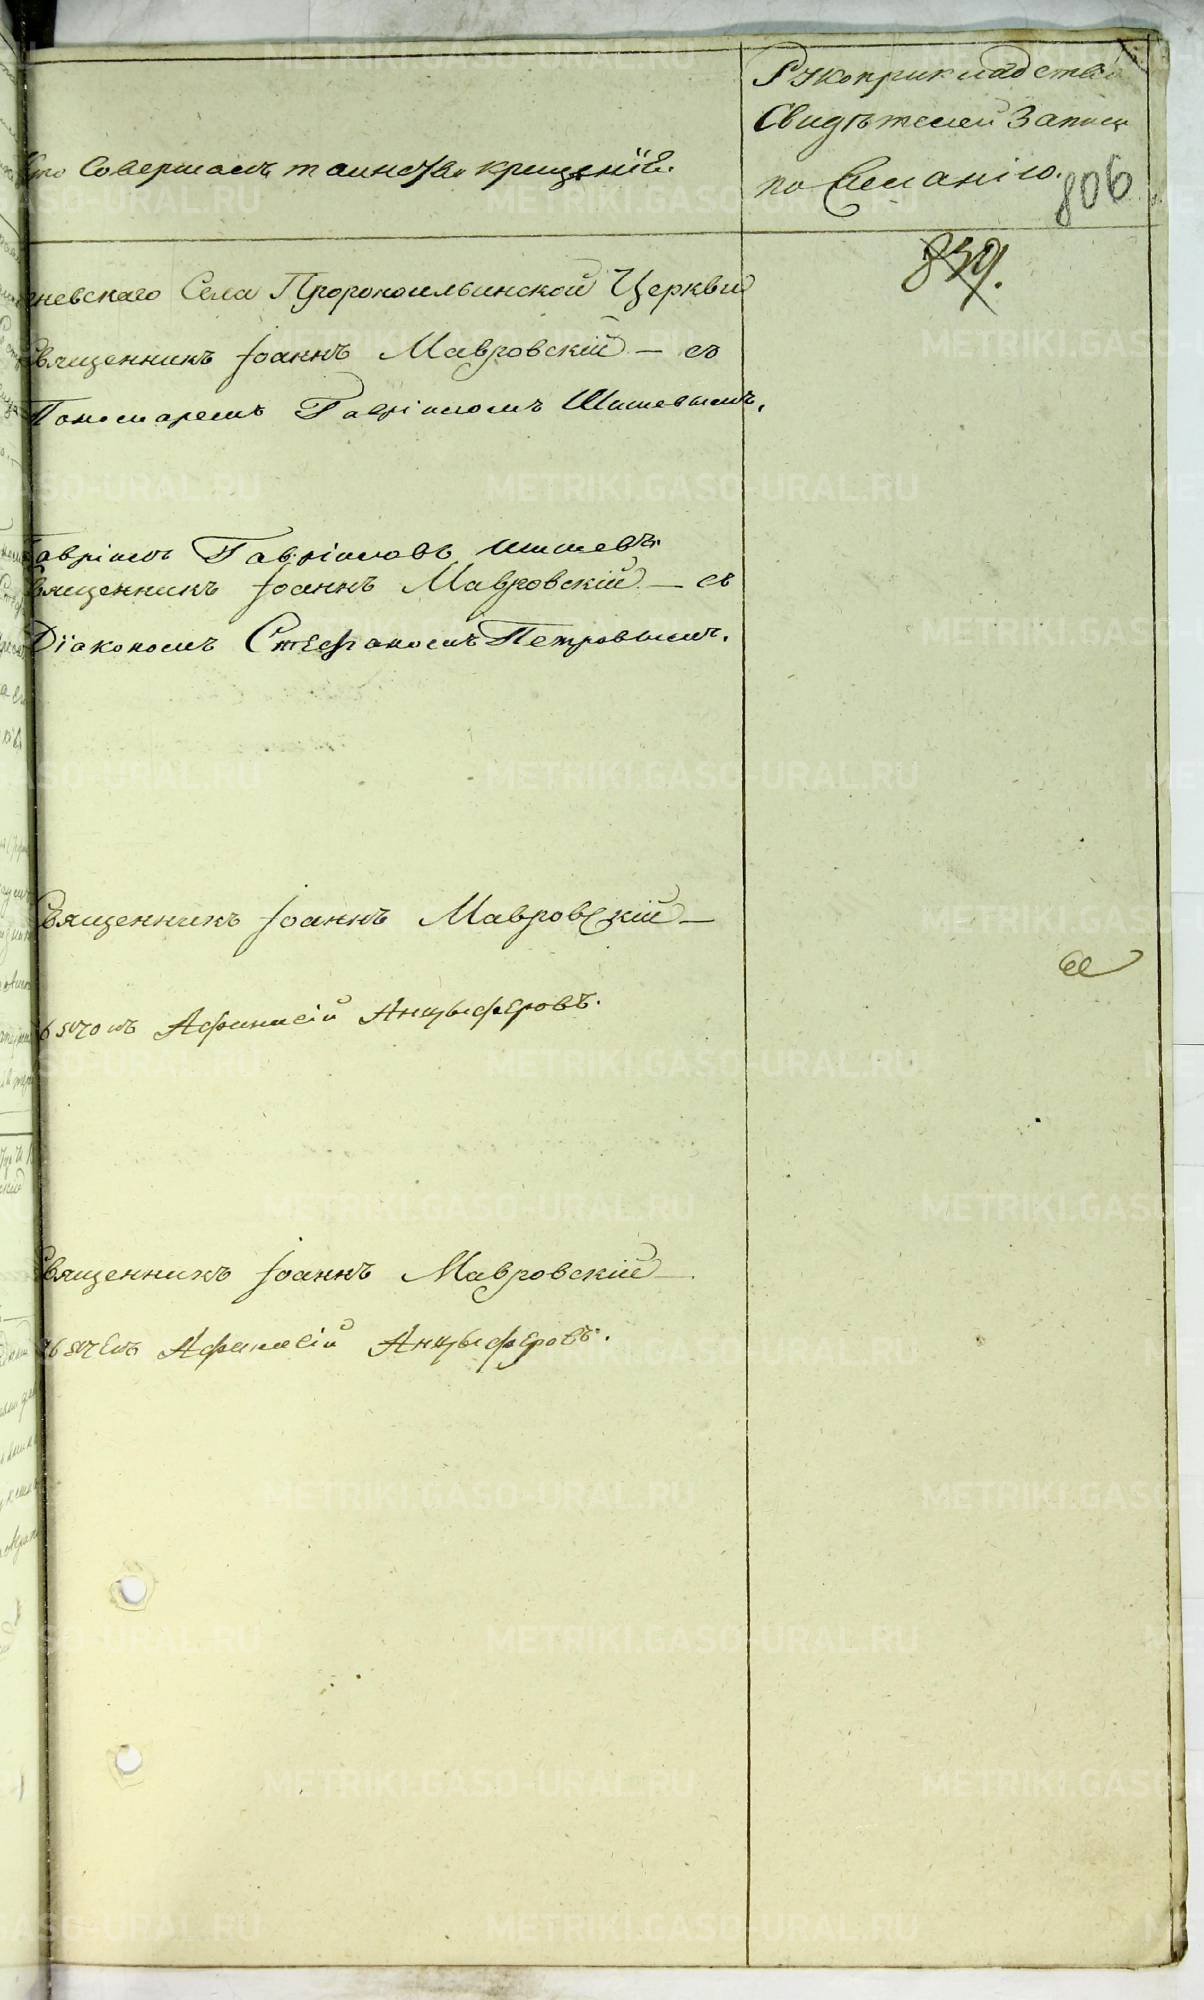 Кто Совершалъ таинство крещенїе.
Рукоприкладство
Свидѣтелей Записи
по Желанію.
806
839.
невскаго Села Пророкоильинской Церкви
Священникъ Іоаннъ Мавровскій — съ
Пономаремъ Гавріиломъ Шишевымъ.
Гавріилъ Гавріиловъ Шишевъ
Священникъ Іоаннъ Мавровскій — съ
Діакономъ Стефаномъ Петровымъ.
Священникъ Іоаннъ Мавровскій —
Афанасій Анцыферовъ.
Священникъ Іоаннъ Мавровскій —
Афанасій Анцыферовъ.
METRIKI.GASO-URAL.RU